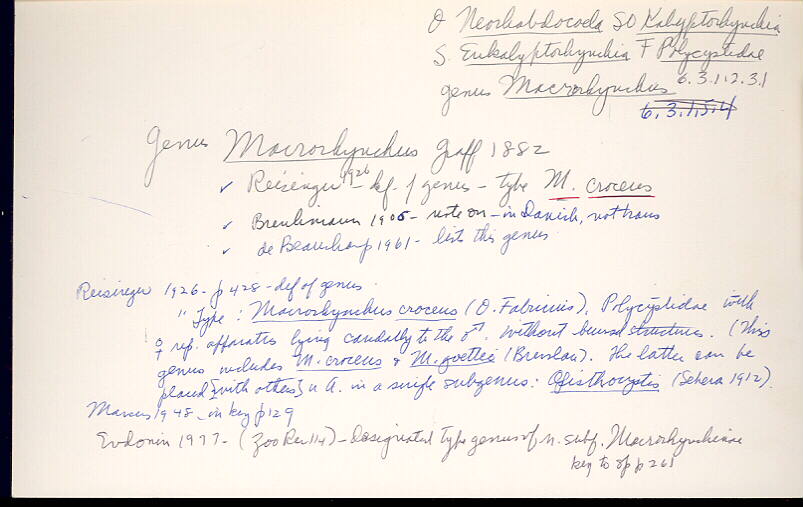 O Neorhabdocoela SO Kalyptorhynchia
S. Eukalyptorhynchia F Polycystidae
genus Macrorhynchus 6.3.1.2.3.1
6.3.1.5.4
Genus Macrorhynchus Graff 1882
✓ Reisinger 1926 - def. of genus - type M. croceus
✓ Brinkmann 1905 - note on - in Danish, not trans
✓ de Beauchamp 1961 - lists this genus
Reisinger 1926 - p 428 - def of genus
" Type: Macrorhynchus croceus (O. Fabricius). Polycystidae with
♀ rep. apparatus lying caudally to the ♂. Without bursa structures. (This
genus includes M. croceus & M. goettei (Bresslau). The latter can be
placed [with others] in a single subgenus: Opisthocystis (Sekera 1912).
Marcus 1948 - in key p 129
Evdonin 1977 - (Zoo Rec 114) - Designated type genus of n. subf. Macrorhynchinae
key to sp p 261